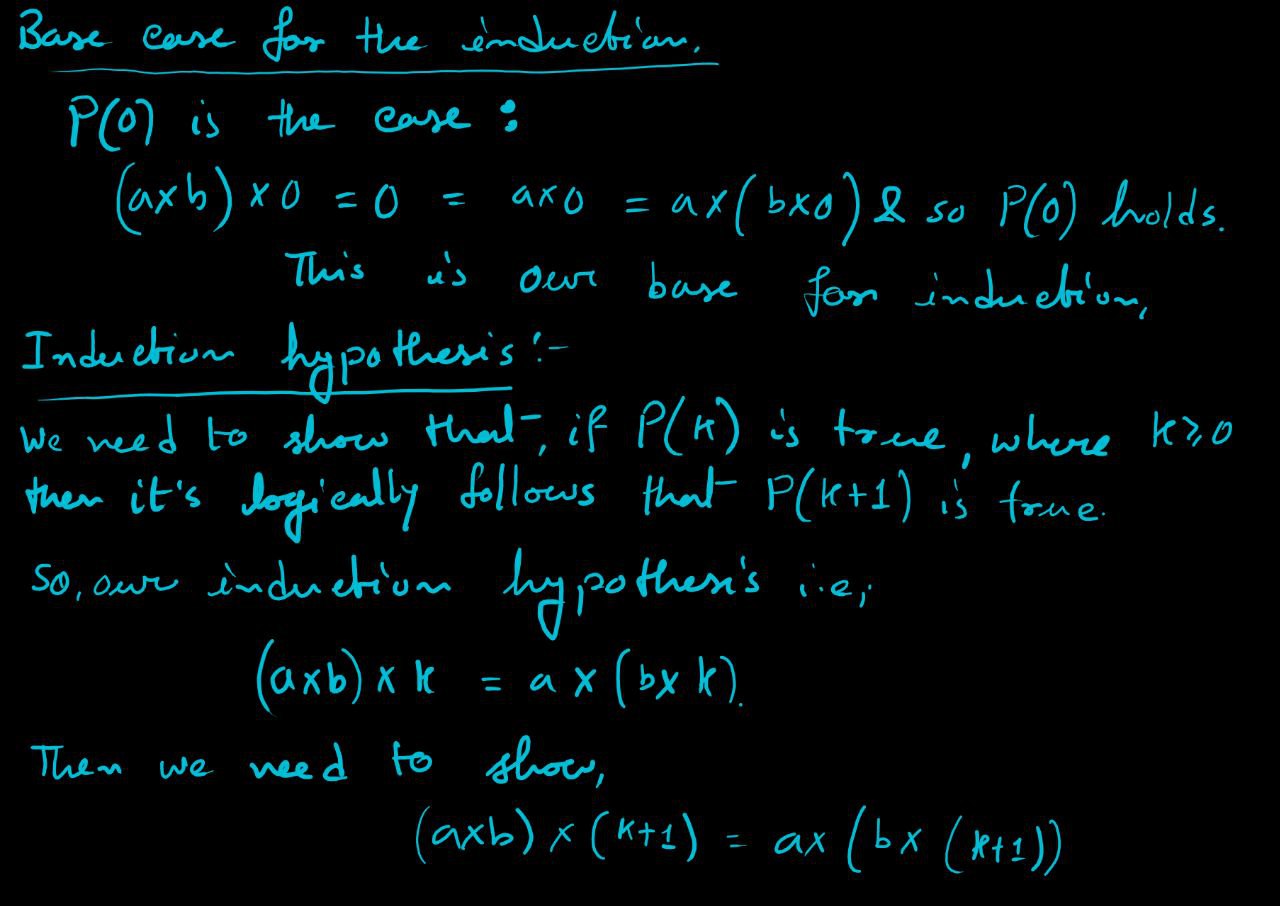 Base case for the induction.
P(0) is the case :
(a×b) × 0 = 0 = a×0 = a×(b×0) & so P(0) holds.
This is our base for induction,
Induction hypothesis :-
We need to show that, if P(k) is true, where k⩾0
then it's logically follows that P(k+1) is true.
So, our induction hypothesis i.e,
(a×b) × k = a × (b× k).
Then we need to show,
(a×b) × (k+1) = a× (b× (k+1))